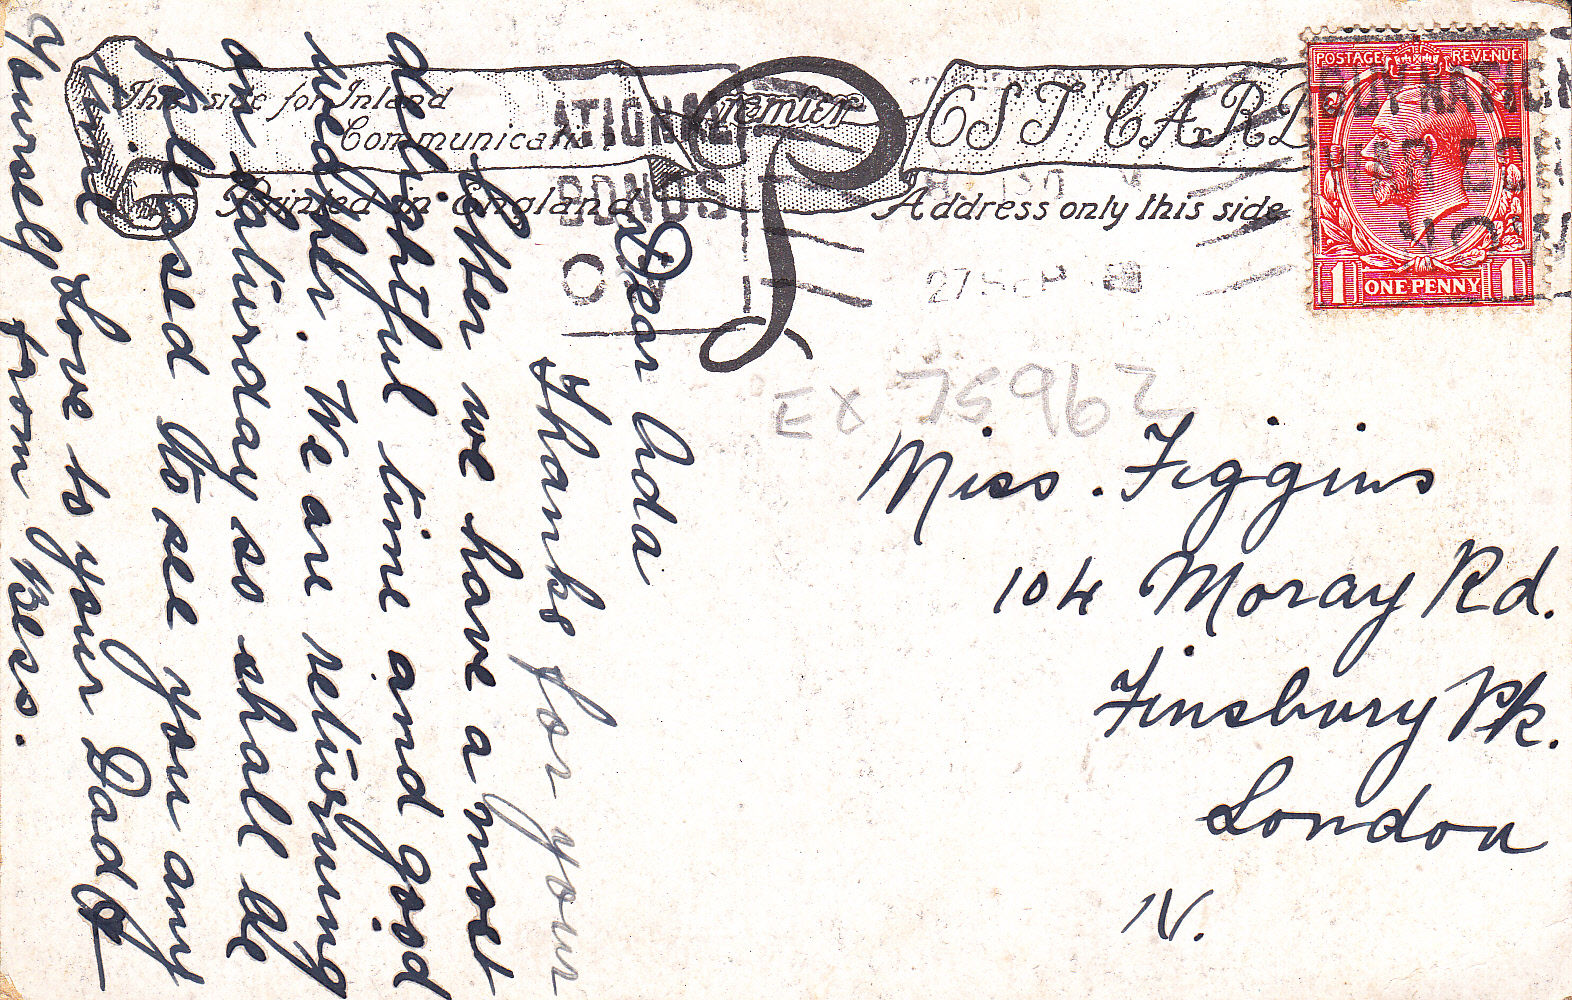 This side for Inland
Communication
Printed in England
Premier
POST CARD
Address only this side
POSTAGE REVENUE
1 ONE PENNY 1
ATIONAL
BONDS
27 SEP
EX 75962
Miss. Figgins
104 Moray Rd.
Finsbury Pk.
London
N.
Dear Ada
Thanks for your
letter we have a most
delightful time and good
weather. We are returning
on Saturday so shall be
pleased to see you any
time
Love to your Dad &
Yourself from Bess.